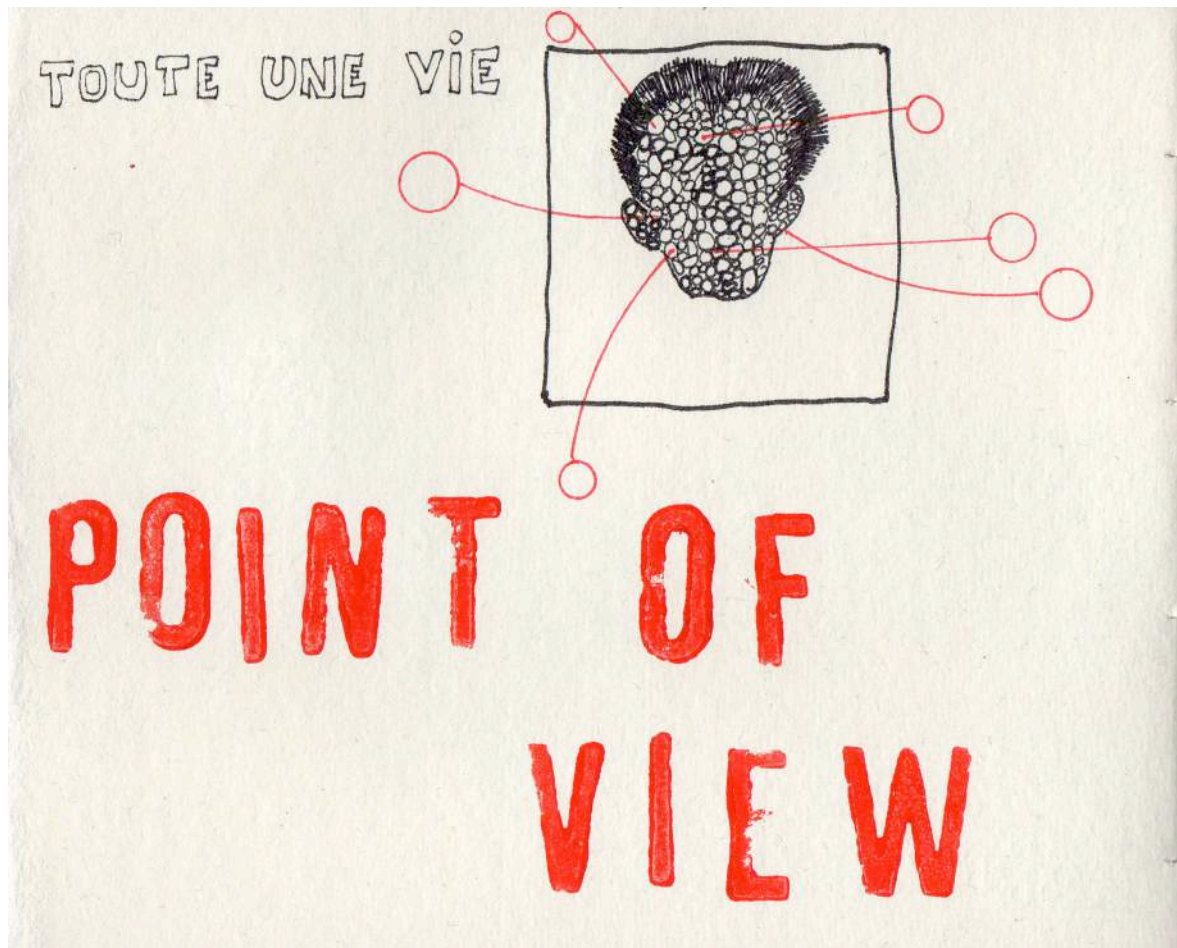 TOUTE UNE ViE
POINT OF
VIEW